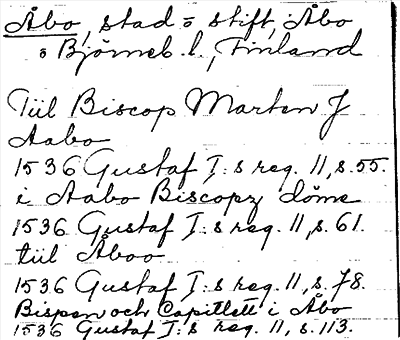 Åbo, stad o stift, Åbo
o Björneb. l., Finland
Tiil Biscop Marten J
Aabo
1536 Gustaf I:s reg. 11, s. 55.
i Aabo Biscopz döme
1536 Gustaf I:s reg. 11, s. 61.
tiil Åboo
1536 Gustaf I:s reg. 11, s. 78.
Bispen och Capittlett i Åbo
1536 Gustaf I:s reg. 11, s. 113.